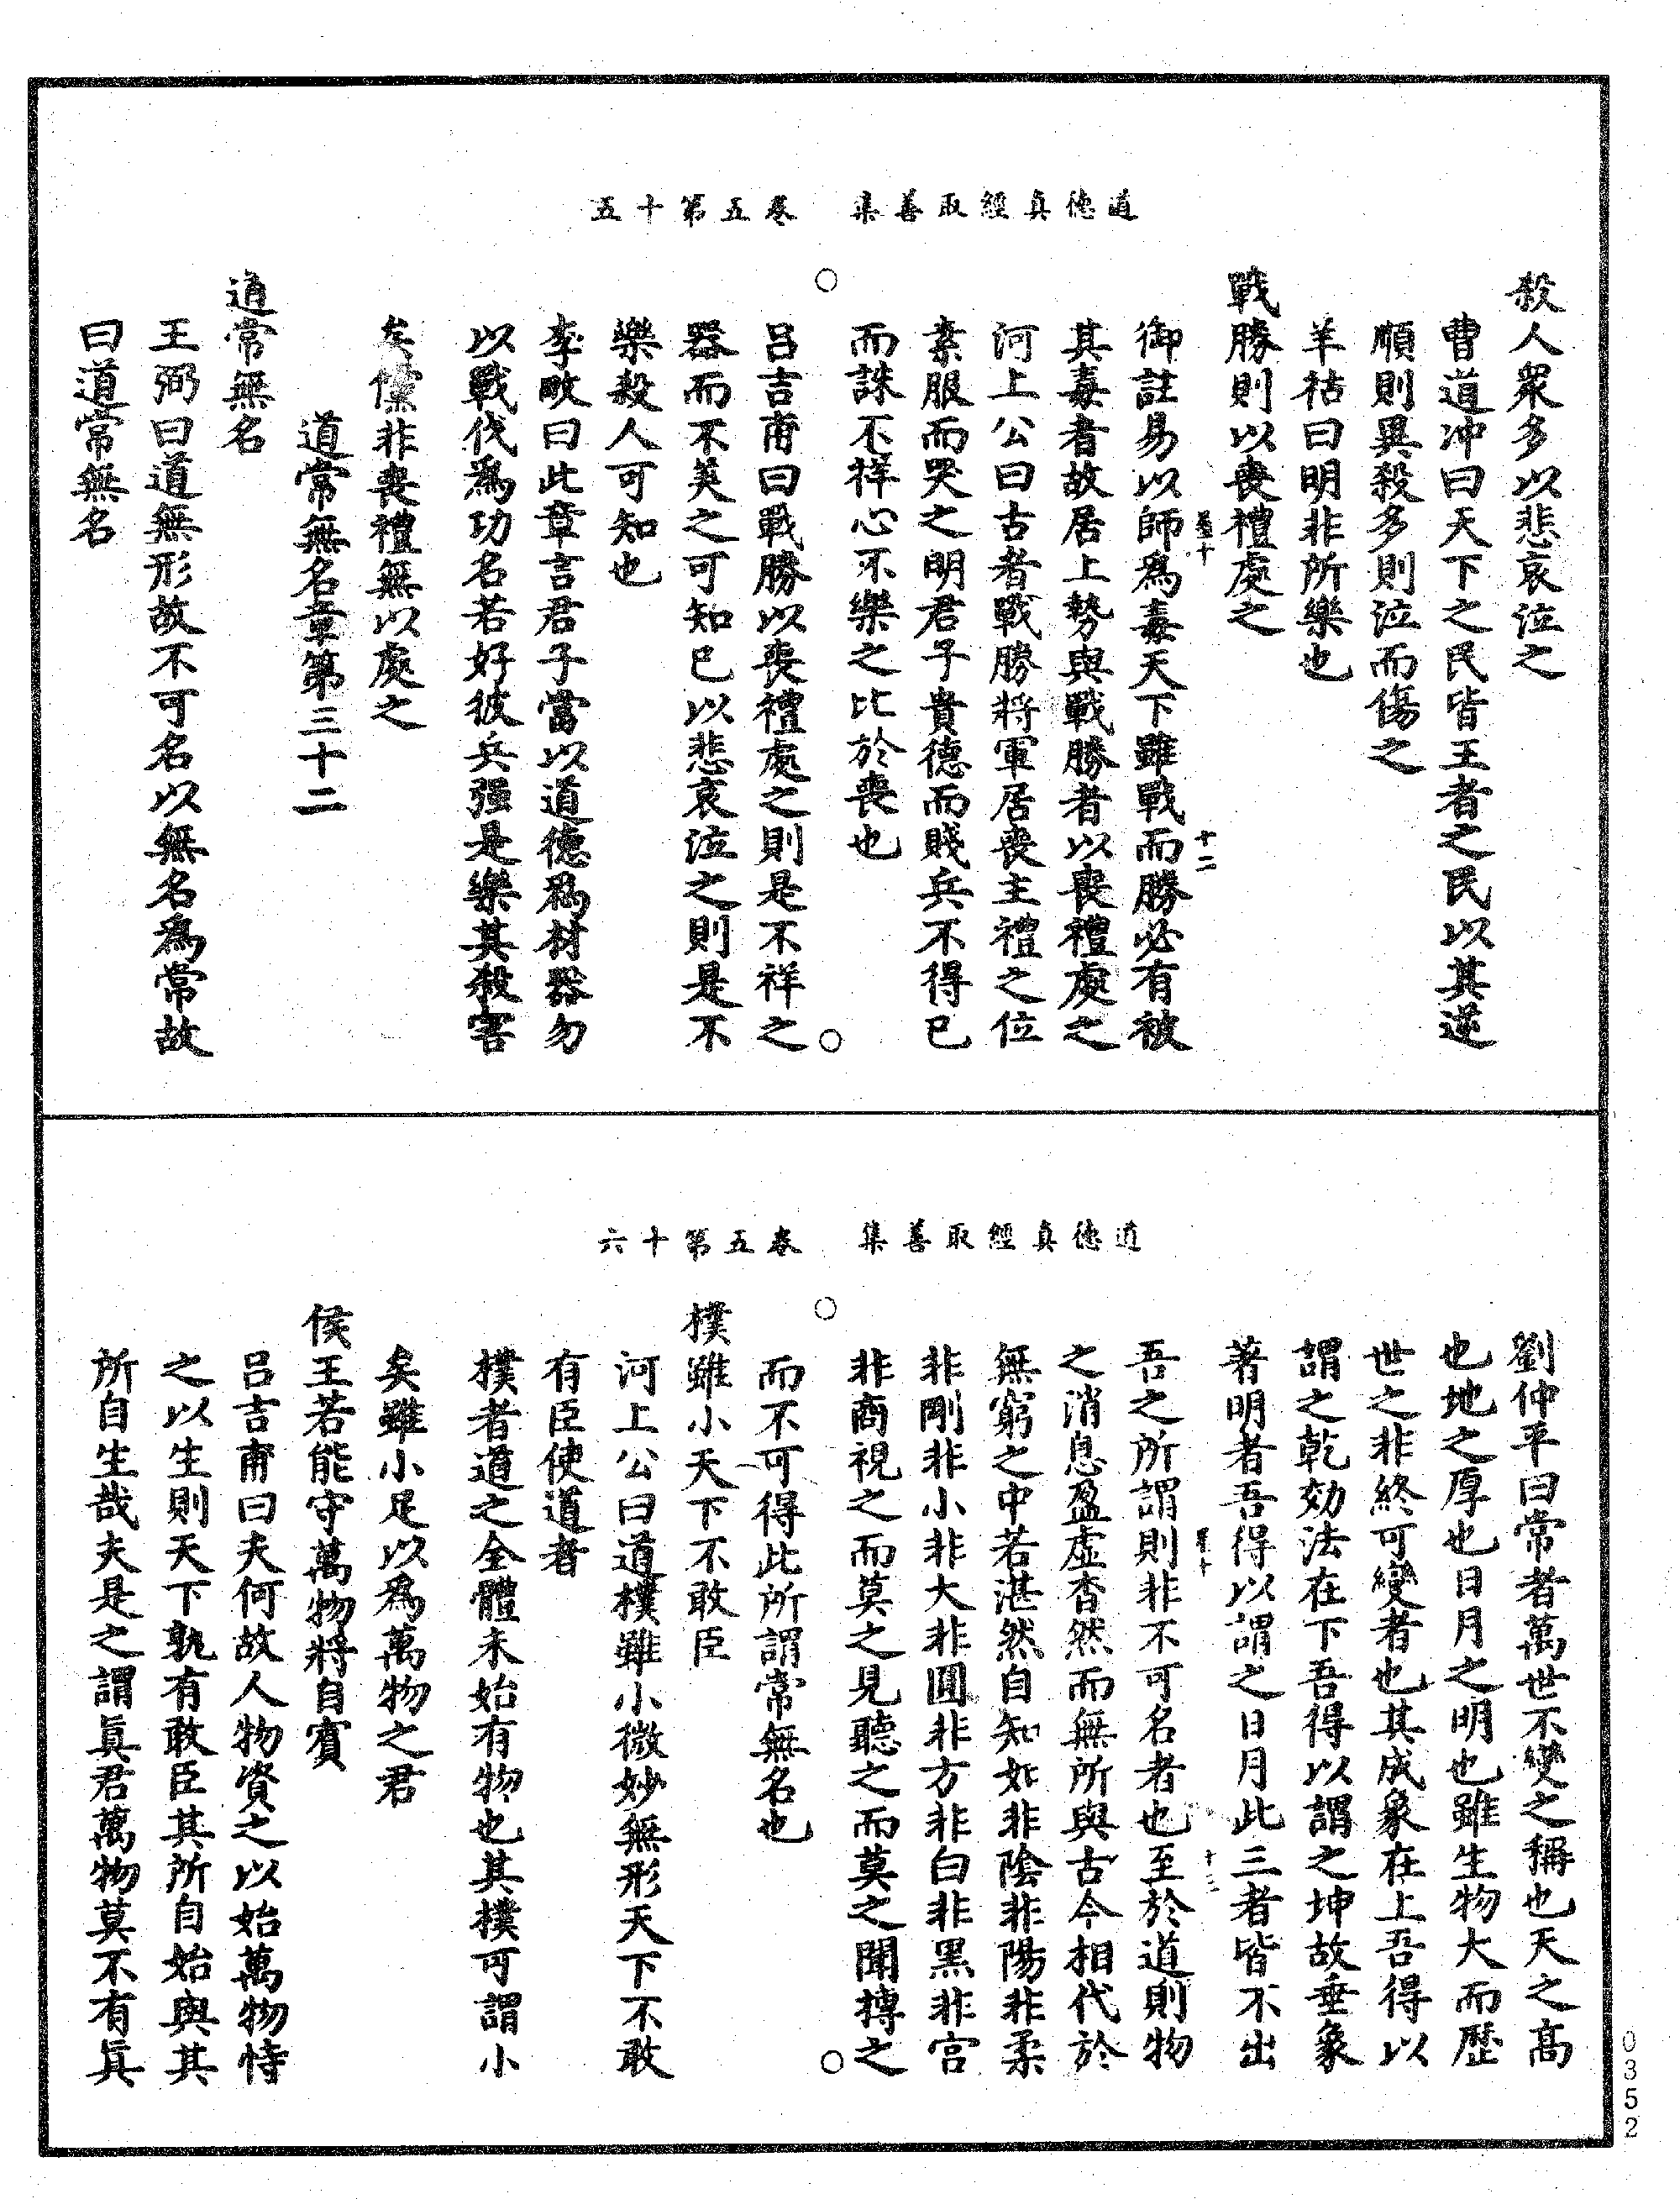 道德真經取善集　卷五第十五
殺人衆多以悲哀泣之
曹道冲曰天下之民皆王者之民以其逆
順則異殺多則泣而傷之
羊祜曰明非所樂也
戰勝則以喪禮處之
十二
御註易以師爲毒天下雖戰而勝必有被
其毒者故居上勢與戰勝者以喪禮處之
河上公曰古者戰勝將軍居喪主禮之位
素服而哭之明君子貴德而賤兵不得已
而誅不祥心不樂之比於喪也
呂吉甫曰戰勝以喪禮處之則是不祥之
器而不美之可知已以悲哀泣之則是不
樂殺人可知也
李畋曰此章言君子當以道德爲材器勿
以戰伐爲功名若好彼兵强是樂其殺害
矣儻非喪禮無以處之
道常無名章第三十二
道常無名
王弼曰道無形故不可名以無名爲常故
曰道常無名
道德真經取善集　卷五第十六
劉仲平曰常者萬世不變之稱也天之高
也地之厚也日月之明也雖生物大而歷
世之非終可變者也其成象在上吾得以
謂之乾効法在下吾得以謂之坤故垂象
著明者吾得以謂之日月此三者皆不出
十三
吾之所謂則非不可名者也至於道則物
之消息盈虛杳然而無所與古今相代於
無窮之中若湛然自知如非陰非陽非柔
非剛非小非大非圓非方非白非黑非宮
非商視之而莫之見聽之而莫之聞摶之
而不可得此所謂常無名也
樸雖小天下不敢臣
河上公曰道樸雖小微妙無形天下不敢
有臣使道者
樸者道之全體未始有物也其樸可謂小
矣雖小足以爲萬物之君
侯王若能守萬物將自賓
呂吉甫曰夫何故人物資之以始萬物恃
之以生則天下孰有敢臣其所自始與其
所自生哉夫是之謂眞君萬物莫不有眞
0352